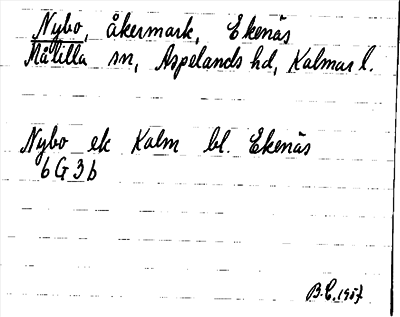 Nybo, åkermark, Ekenäs
Målilla sn, Aspelands hd, Kalmar l.
Nybo ek Kalm bl. Ekenäs
6G3b
B.C. 1957